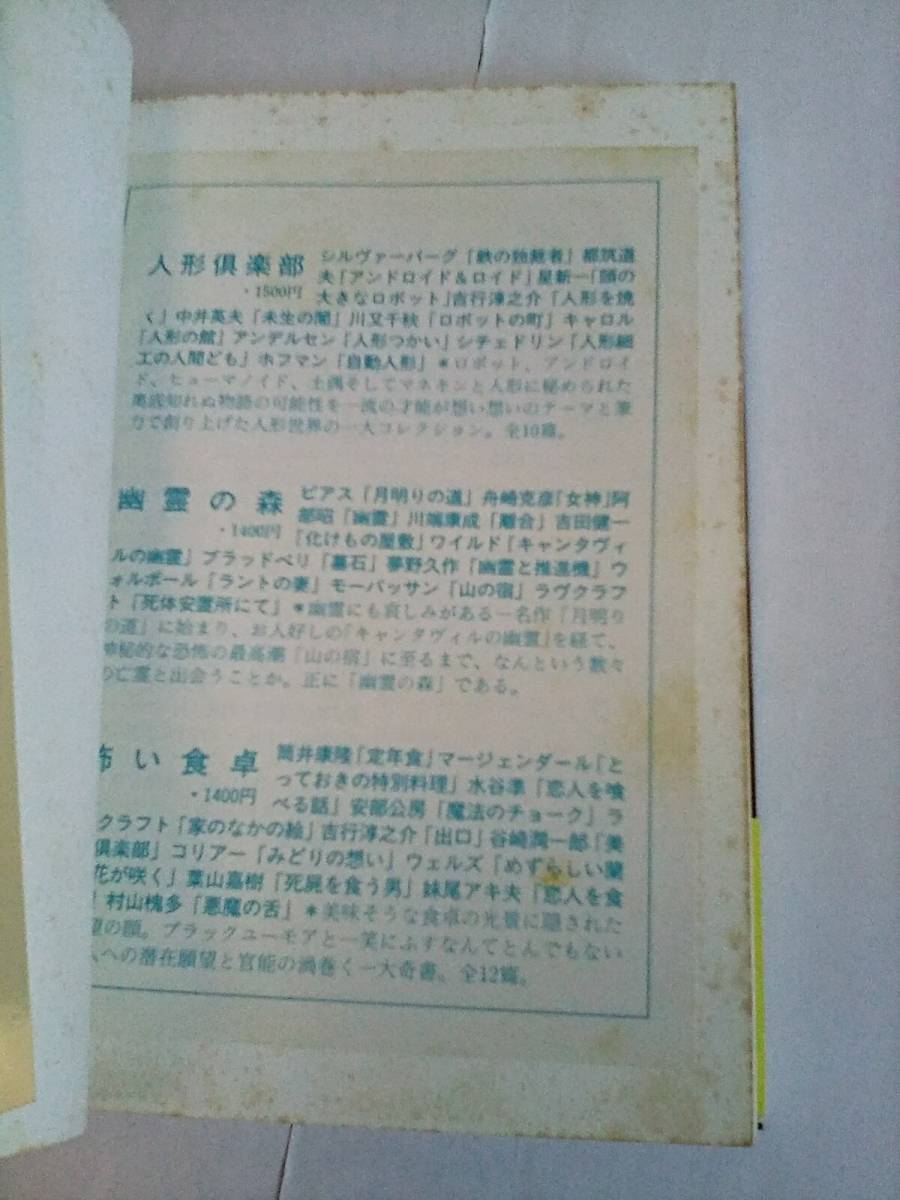 人形俱楽部
・1500円
シルヴァーバーグ「鉄の独裁者」都筑道
夫「アンドロイド&ロイド」星新一「頭の
大きなロボット」吉行淳之介「人形を焼
く」中井英夫「未生の闇」川又千秋「ロボットの町」キャロル
「人形の館」アンデルセン「人形つかい」シチェドリン「人形細
工の人間ども」ホフマン「自動人形」＊ロボット、アンドロイ
ド、ヒューマノイド、土偶そしてマネキンと人形に秘められた
奥底知れぬ物語の可能性を一流の才能が想い想いのテーマと筆
力で創り上げた人形世界の一大コレクション。全10篇。
幽霊の森
・1400円
ビアス「月明りの道」舟崎克彦「女神」阿
部昭「幽霊」川端康成「離合」吉田健一
「化けもの屋敷」ワイルド「キャンタヴィ
ルの幽霊」ブラッドベリ「墓石」夢野久作「幽霊と推進機」ウ
ォルポール「ラントの妻」モーパッサン「山の宿」ラヴクラフ
ト「死体安置所にて」＊幽霊にも哀しみがある―名作「月明り
の道」に始まり、お人好しの「キャンタヴィルの幽霊」を経て、
神秘的な恐怖の最高潮「山の宿」に至るまで、なんという数々
の亡霊と出会うことか。正に「幽霊の森」である。
怖い食卓
・1400円
筒井康隆「定年食」マージェンダール「と
っておきの特別料理」水谷準「恋人を喰
べる話」安部公房「魔法のチョーク」ラ
クラフト「家のなかの絵」吉行淳之介「出口」谷崎潤一郎「美
俱楽部」コリアー「みどりの想い」ウェルズ「めずらしい蘭
花が咲く」葉山嘉樹「死屍を食う男」妹尾アキ夫「恋人を食
」村山槐多「悪魔の舌」＊美味そうな食卓の光景に隠された
望の顔。ブラックユーモアと一笑にふすなんてとんでもない
への潜在願望と官能の渦巻く一大奇書。全12篇。